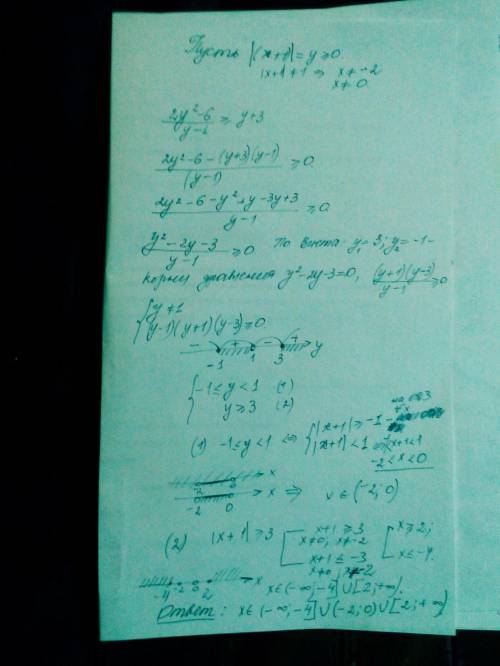 Пусть |x+1| = y ≥ 0.
|x+1| ≠ 1 ⇒ x ≠ -2
x ≠ 0.
(2y²-6)/(y-1) ≥ y+3
(2y²-6-(y+3)(y-1))/(y-1) ≥ 0
(2y²-6-y²+y-3y+3)/(y-1) ≥ 0
(y²-2y-3)/(y-1) ≥ 0 По Виета: y₁=3; y₂=-1-
корни уравнения y²-2y-3=0, ((y+1)(y-3))/(y-1) ≥ 0
{ y ≠ 1
(y-1)(y+1)(y-3) ≥ 0.
- + - + y
-1 1 3
{ -1 ≤ y < 1 (1)
y ≥ 3 (2)
(1) -1 ≤ y < 1 ⇔ { |x+1| ≥ -1 -
|x+1| < 1 ⇔ -1<x+1<1
-2 < x < 0
-2 0 x
-2 0 x ⇒ x ∈ (-2; 0)
(2) |x+1| ≥ 3 [ x+1 ≥ 3 [ x ≥ 2;
x ≠ 0, x ≠ -2
x+1 ≤ -3 x ≤ -4.
x ≠ 0, x ≠ -2
-4 -2 0 2 x x ∈ (-∞; -4] ∪ [2; +∞).
Ответ: x ∈ (-∞; -4] ∪ (-2; 0) ∪ [2; +∞)